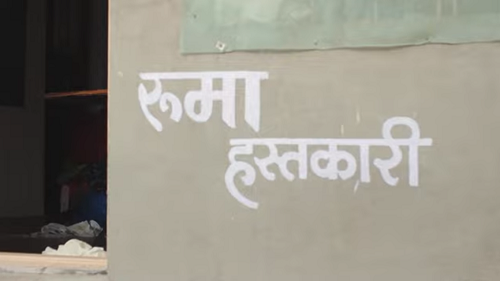 रूमा
हस्तकारी